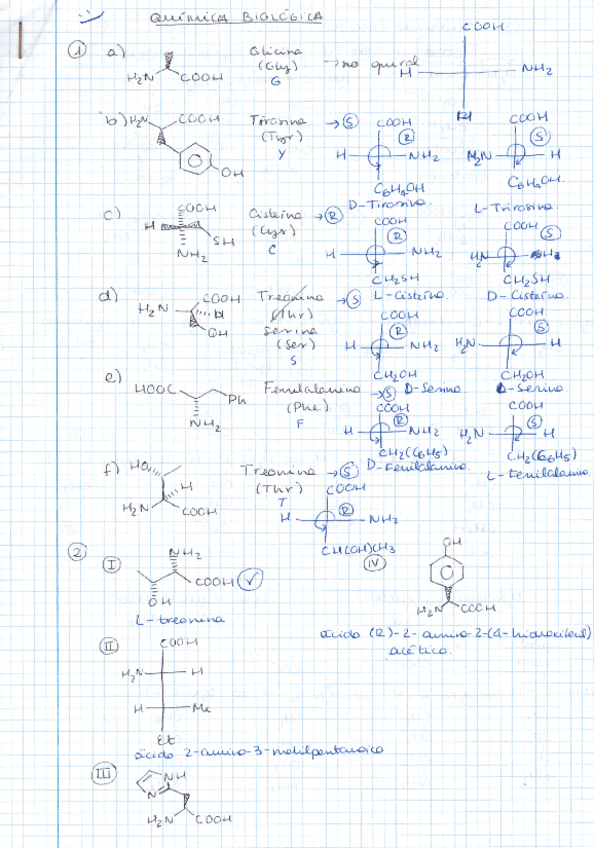 QUÍMICA BIOLÓGICA
1
① a) H₂N COOH Glicina (Gly) G → no quiral H COOH NH₂ H
b) H₂N COOH OH Tirosina (Tyr) Y → Ⓢ
COOH Ⓡ H NH₂ C₆H₄OH D-Tirosina
COOH Ⓢ H₂N H C₆H₄OH L-Tirosina
c) COOH H SH NH₂ Cisteína (Cys) C → Ⓡ
COOH Ⓡ H NH₂ CH₂SH L-Cisteína
COOH Ⓢ H₂N H CH₂SH D-Cisteína
d) H₂N COOH H OH Treonina (Thr) Serina (Ser) S → Ⓢ
COOH Ⓡ H NH₂ CH₂OH D-Serina
COOH Ⓢ H₂N H CH₂OH L-Serina
e) HOOC Ph NH₂ Fenilalanina (Phe) F → Ⓢ
COOH Ⓡ H NH₂ CH₂(C₆H₅) D-Fenilalanina
COOH Ⓢ H₂N H CH₂(C₆H₅) L-Fenilalanina
f) HO H H₂N COOH Treonina (Thr) T → Ⓢ
COOH Ⓡ H NH₂ CH(OH)CH₃
② Ⓘ NH₂ COOH OH
L-treonina
IV OH H₂N COOH
ácido (R)-2-amino-2-(4-hidroxifenil)
acético.
II COOH H₂N H H Me Et
ácido 2-amino-3-metilpentanoico
III NH N H₂N COOH